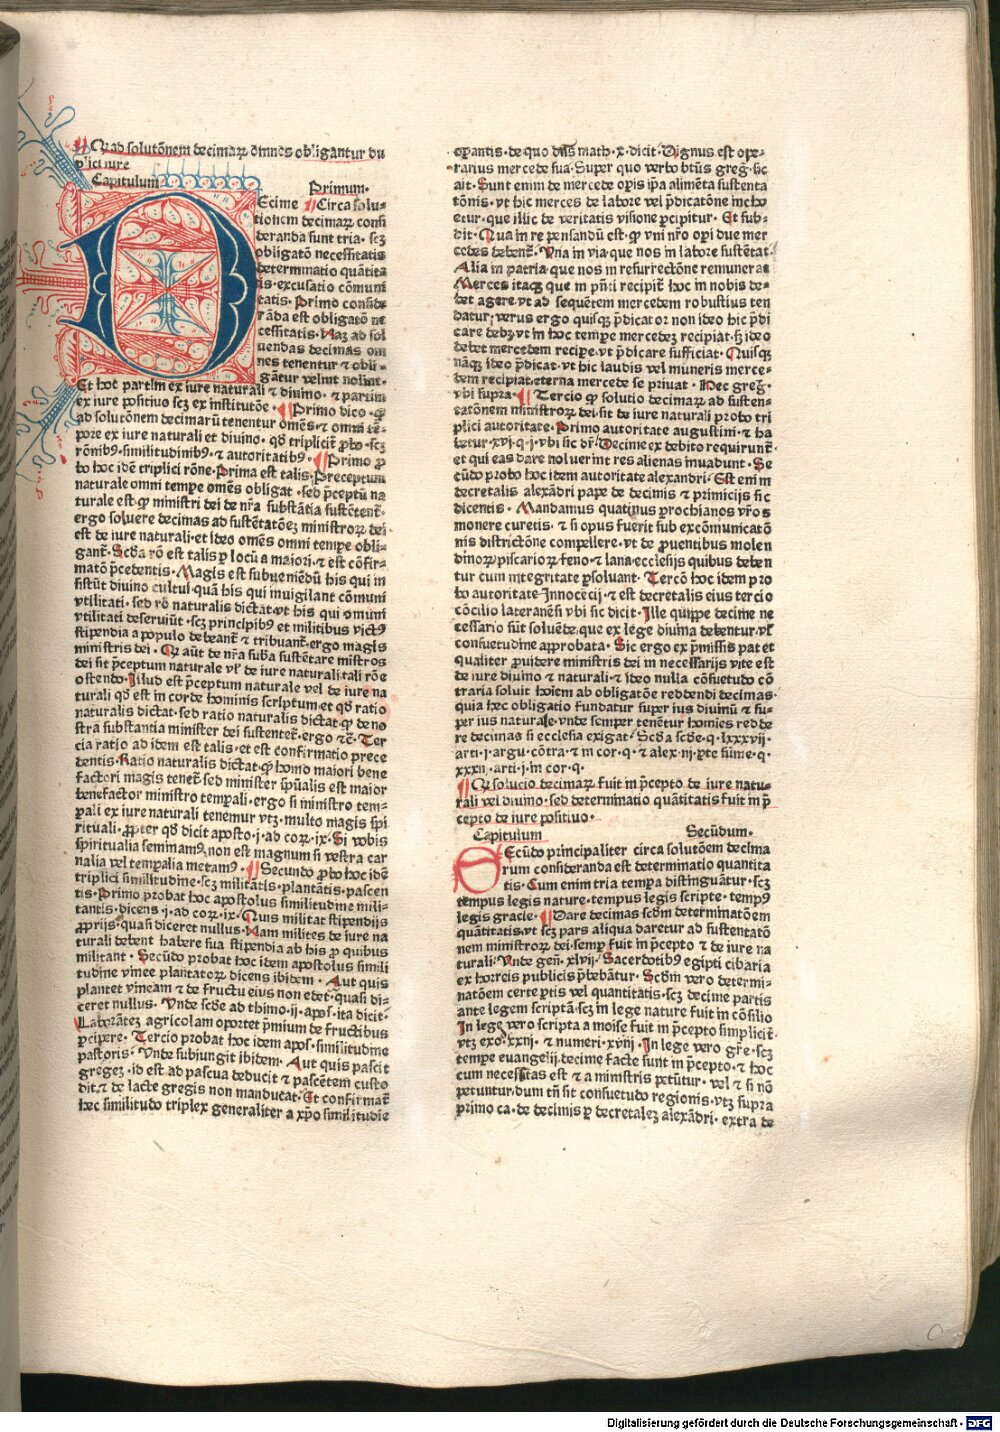 Qꝛ ad solutõnem decimaꝝ omnes obligantur du
plici iure
Capitulum Primum·
DEcime Circa solu⸗
tionem decimaꝝ consi
deranda sunt tria· scꝫ
obligatõ necessitatis
determinatio quãtita
tis·excusatio cõmuni
tatis· Primo conside
rãda est obligatõ ne
cessitatis· Naꝫ ad sol
uendas decimas om
nes tenentur ⁊ obli⸗
gãtur velint nolint·
Et hoc partim ex iure naturali ⁊ diuino· ⁊ partim
ex iure positiuo scꝫ ex institutõe· Primo dico· ꝙ
ad solutõnem decimarũ tenentur omẽs·⁊ omni tẽ⸗
pore ex iure naturali et diuino· qð tripliciť ꝓbo·scꝫ
rõnibꝰ·similitudinibꝰ·⁊ autoritatibꝰ· Primo ꝓ
bo hoc idẽ triplici rõne·Prima est talis·Preceptum
naturale omni tempe omẽs obligat· sed p̃ceptũ na
turale est·ꝙ ministri dei de nr̃a substãtia sustẽtent̃·
ergo soluere decimas ad sustẽtatõeꝫ ministroꝝ dei
est de iure naturali·et ideo omẽs omni tempe obli⸗
gant̃· Scða rõ est talis ꝑ locũ a maiori·⁊ est cõfir⸗
matõ p̃cedentis·Magis est subueniẽdũ his qui in
sistũt diuino cultui·quã his qui inuigilant cõmuni
vtilitati· sed rõ naturalis dictat·vt his qui omuni
vtilitati deseruiũt·scꝫ principibꝰ et militibus victꝰ
stipendia a populo debeant̃ ⁊ tribuant̃·ergo magis
ministris dei· Qꝛ aũt de nr̃a suba sustẽtare mistros
dei sit p̃ceptum naturale vł de iure naturali·tali rõe
ostendo·Illud est p̃ceptum naturale vel de iure na
turali qð est in corde hominis scriptum et qð ratio
naturalis dictat·sed ratio naturalis dictat·ꝙ de no
stra substantia minister dei sustentet̃·ergo ⁊c̃·Ter
cia ratio ad idem est talis·et est confirmatio prece
dentis·Ratio naturalis dictat·ꝙ homo maiori bene
factori magis tenet̃ sed minister spũalis est maior
benefactor ministro temp̱ali·ergo si ministro tem⸗
p̱ali ex iure naturali tenemur vtꝫ·multo magis spi
rituali·ꝓpter qð dicit aposto·j·ad coꝝ·ix·Si vobis
spiritualia seminamꝰ·non est magnum si vestra car
nalia vel temp̱alia metamꝰ· Secundo ꝓbo hoc idẽ
triplici similitudine·scꝫ militãtis·plantãtis·pascen
tis·Primo probat hoc apostolus similitudine mili⸗
tantis·dicens·j·ad coꝝ·ix·Quis militat stipendijs
ꝓprijs·quasi diceret nullus·Nam milites de iure na
turali debent habere sua stipendia ab his ꝓ quibus
militant· Secũdo probat hoc idem apostolus simili
tudine vinee plantatoꝝ dicens ibidem· Aut quis
plantet vineam ⁊ de fructu eius non edet·quasi di⸗
ceret nullus· Vnde scðe ad thimo·ij·apos̃·ita dicit·
Laborãteꝫ agricolam oportet p̃mium de fructibus
ꝑcipere· Tercio probat hoc idem apos̃·similitudine
pastoris· Vnde subiungit ibidem· Aut quis pascit
gregeꝫ·id est ad pascua deducit ⁊ pascẽtem custo
dit·⁊ de lacte gregis non manducat·Et confirmat̃
hec similitudo triplex generaliter a xp̃o similitudie
oꝑantis·de quo dñs math·x·dicit·Dignus est ope⸗
rarius mercede sua·Super quo verbo btũs greḡ·sic
ait·Sunt enim de mercede oꝑis ip̃a alimẽta sustenta
tõnis·vt hic merces de labore vel p̃dicatõne incho
etur·que illic de veritatis visione ꝑcipitur· Et sub⸗
dit· Qua in re pensandũ est·ꝙ vni nr̃o oꝑi due mer
cedes debent̃· Vna in via·que nos in labore sustẽtat·
Alia in patria·que nos in resurrectõne remunerat
Merces itaqꝫ que in pñti recipit̃ hoc in nobis de⸗
bet agere·vt ad sequẽtem mercedem robustius ten
datur·verus ergo quisqꝫ p̃dicator non ideo hic p̃di
care debꝫ·vt in hoc tempe mercedeꝫ recipiat·sꝫ ideo
debet mercedem recipe·vt p̃dicare sufficiat· Quisqꝫ
nãqꝫ ideo p̃dicat·vt hic laudis vel muneris merce⸗
dem recipiat·eterna mercede se priuat· Hec greḡ·
vbi supra· Tercio ꝙ solutio decimaꝝ ad susten⸗
tatõnem ministroꝝ dei·sit de iure naturali probo tri
plici autoritate·Primo autoritate augustini·⁊ ha
betur·xvj·q·j·vbi sic dr̃·Decime ex debito requirunt̃·
et qui eas dare noluerint res alienas inuadunt· Se
cũdo probo hoc idem autoritate alexandri· Est enim
decretalis alexãdri pape de decimis ⁊ primicijs sic
dicentis· Mandamus quatinus ꝑrochianos vr̃os
monere curetis·⁊ si opus fuerit sub excõmunicatõ
nis districtõne compellere·vt de ꝓuentibus molen
dinoꝝ·piscarioꝝ·feno·⁊ lana·ecclesijs quibus deben
tur cum integritate ꝑsoluant· Tercõ hoc idem pro
bo autoritate Innocecij·⁊ est decretalis eius tercio
cõcilio lateranẽsi vbi sic dicit· Ille quippe decime ne
cessario sũt soluẽde·que ex lege diuina debentur·vł
consuetudine approbata· Sic ergo ex p̃missis pat et
qualiter ꝓuidere ministris dei in necessarijs vite est
de iure diuino ⁊ naturali·⁊ ideo nulla cõsuetudo cõ
traria soluit hoiem ab obligatõe reddendi decimas·
quia hec obligatio fundatur super ius diuinũ ⁊ su⸗
per ius naturale·vnde semper tenẽtur homies redde
re decimas si ecclesia exigat· Scða scðe·q·lxxxvij·
arti·j·argu·cõtra·⁊ in cor·q·⁊ alex·iij·ꝑte sũme·q·
xxxij·arti·j·in cor·q·
Qꝛ solucio decimaꝝ fuit in p̃cepto de iure natu⸗
rali vel diuino·sed determinatio quãtitatis fuit in p̃
cepto de iure positiuo·
Capitulum Secũdum·
SEcũdo principaliter circa solutõem decima
rum consideranda est determinatio quantita
tis·Cum enim tria tempa distinguãtur·scꝫ
tempus legis nature·tempus legis scripte·tempꝰ
legis gracie· Dare decimas scðm determinatõem
quãtitatis·vt scꝫ pars aliqua daretur ad sustentatõ
nem ministroꝝ dei·semp fuit in p̃cepto ⁊ de iure na
turali· Vnde geñ·xlvij·Sacerdotibꝰ egipti cibaria
ex horreis publicis p̃bebãtur· Scðm vero determi⸗
natõem certe ꝑtis vel quantitatis·scꝫ decime partis
ante legem scriptã·scꝫ in lege nature fuit in cõsilio
In lege vero scripta a moise fuit in p̃cepto simplicit̃·
vtꝫ exo·xxij·⁊ numeri·xviij·In lege vero gr̃e·scꝫ
tempe euangelij·decime facte sunt in p̃cepto·⁊ hoc
cum necessitas est ⁊ a ministris petũtur· vel ⁊ si nõ
petuntur·dum tñ sit consuetudo regionis·vtꝫ supra
primo ca·de decimis ꝑ decretaleꝫ alexãdri·extra de
Digitalisierung gefördert durch die Deutsche Forschungsgemeinschaft - DFG